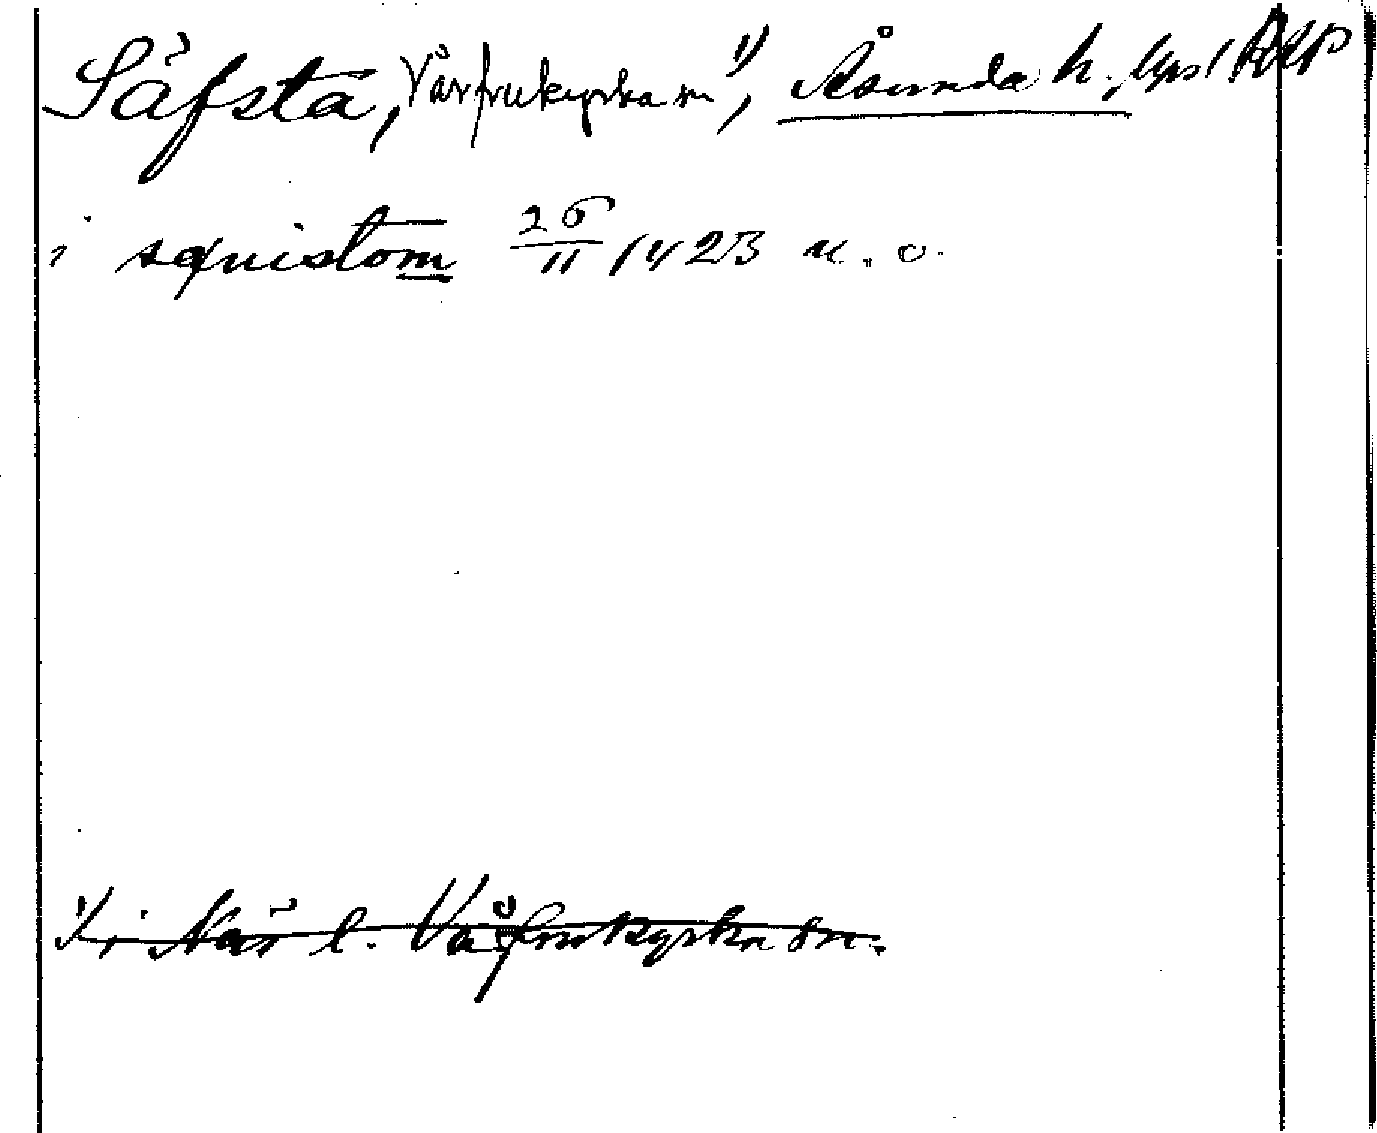 Säfsta, Vårfrukyrka sn ¹⁾, Åsunda h., Upsl RAP
i sqnistom 26/11 1423 u. o.
¹⁾ i När l. Vårfrukyrka sn.